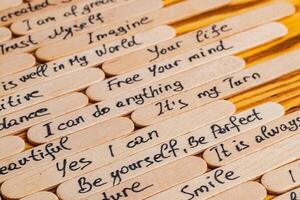 created
I am of great
Trust Myself
Imagine
is well in My World
Your life
Free Your mind
I can do anything
It's my Turn
I can
Yes I can
Be yourself, Be Perfect
It is always
Smile